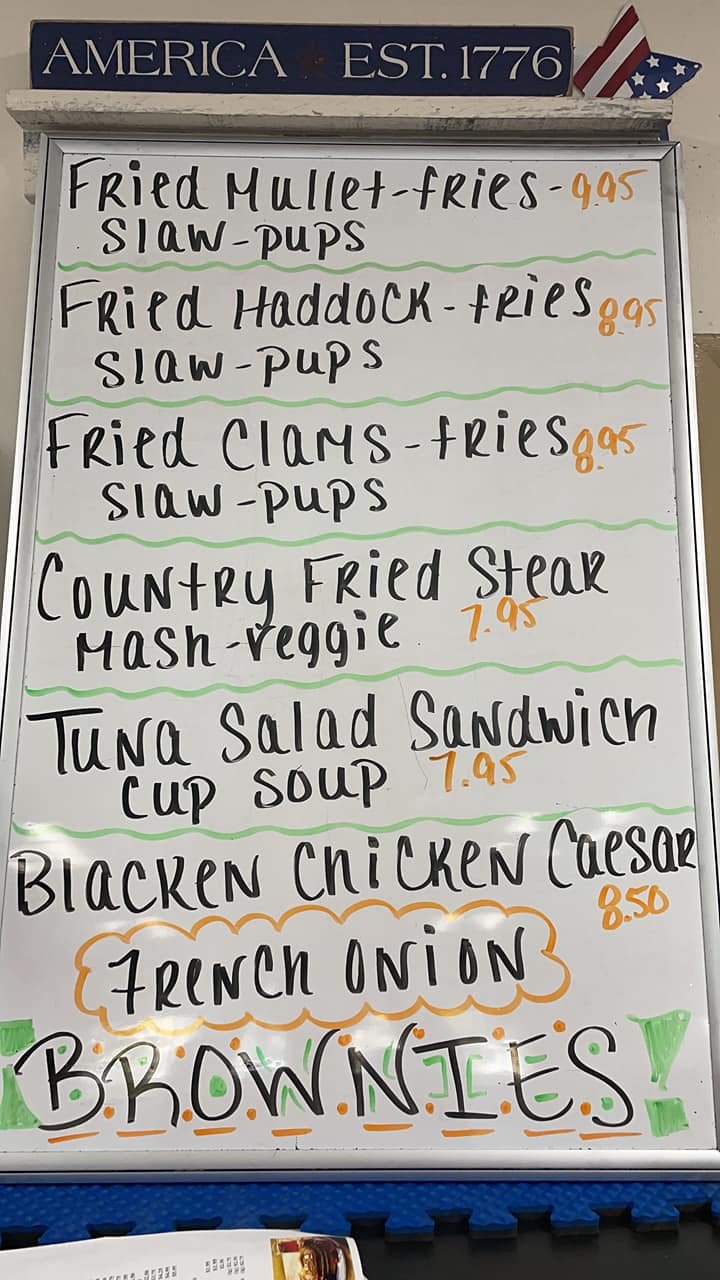 AMERICA EST. 1776
Fried Mullet-fries-9.95
slaw-pups
Fried Haddock-fries 8.95
slaw-pups
Fried Clams-fries 8.95
slaw-pups
Country Fried Steak
Mash-veggie 7.95
Tuna Salad Sandwich
cup soup 7.95
Blacken Chicken Caesar
8.50
French Onion
BROWNIES!